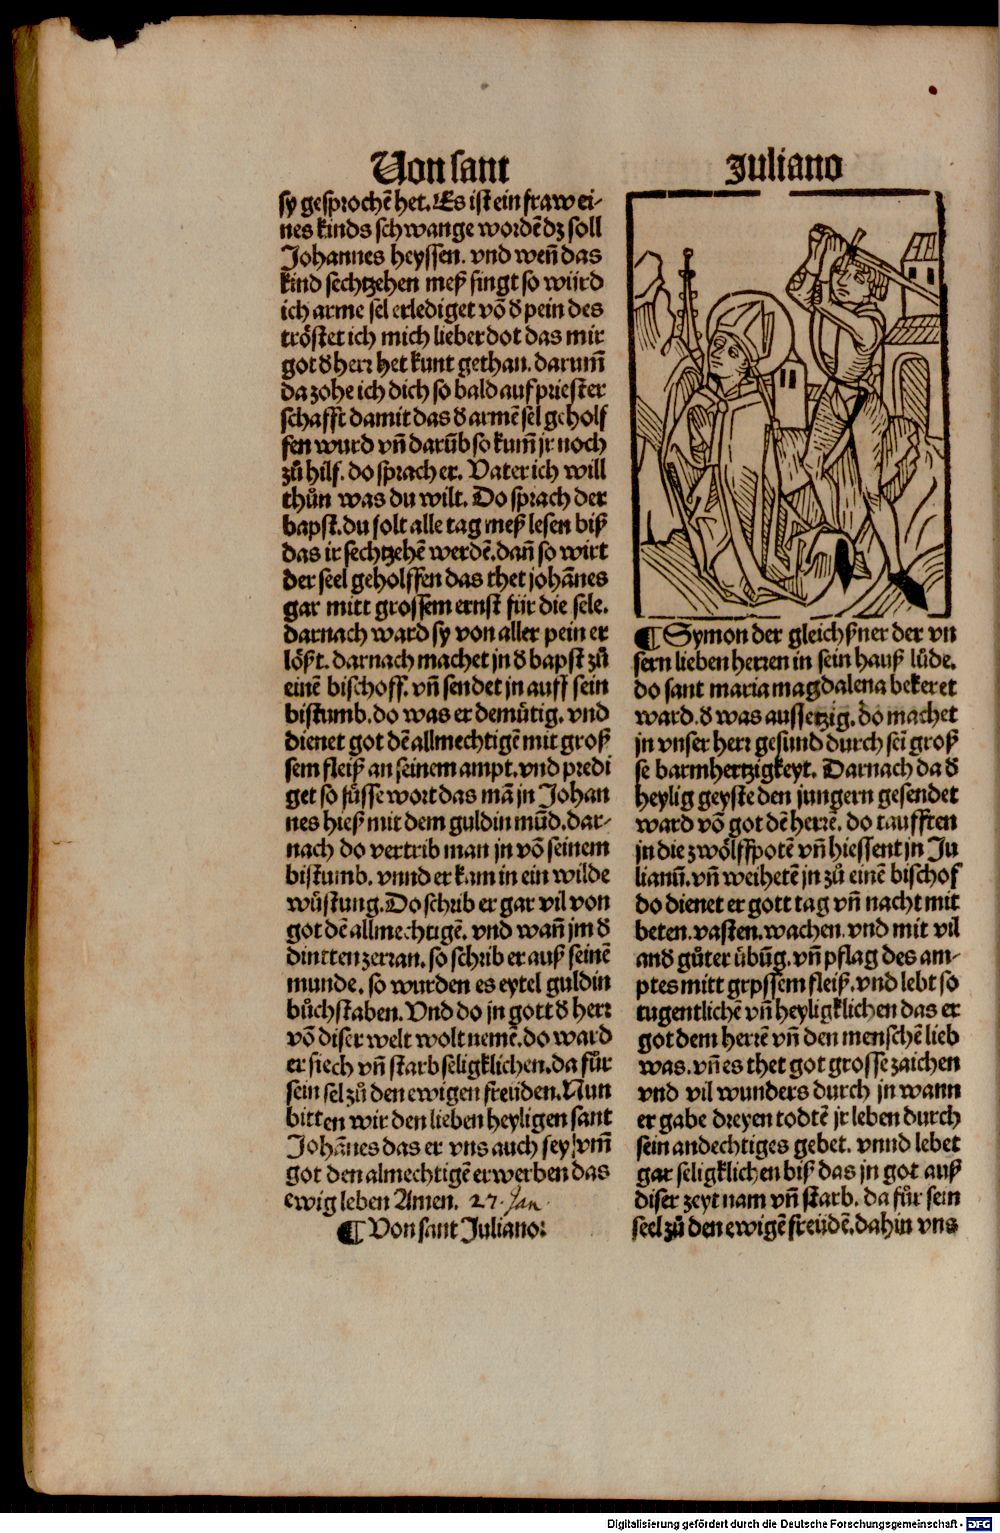 Von sant
sy gesprochē het. Es ist ein fraw ei-
nes kinds schwange wordē dz soll
Johannes heyssen. vnd weñ das
kind sechtzehen meß singt so würd
ich arme sel erlediget vō d̕ pein des
tröstet ich mich lieber dot das mir
got d̕ herr het kunt gethan. darum̄
da zohe ich dich so bald auf priester
schafft damit das d̕ armē sel geholf
fen wurd vñ darūb so kum̄ jr noch
zů hilf. do sprach er. Vater ich will
thůn was du wilt. Do sprach der
bapst. du solt alle tag meß lesen biß
das ir sechtzehē werdē. dañ so wirt
der seel geholffen das thet johānes
gar mitt grossem ernst für die sele.
darnach ward sy von aller pein er
lößt. darnach machet jn d̕ bapst zů
einē bischoff. vñ sendet jn auff sein
bistumb. do was er demütig. vnd
dienet got dē allmechtigē mit groß
sem fleiß an seinem ampt. vnd predi
get so süsse wort das mā jn Johan
nes hieß mit dem guldin mūd. dar-
nach do vertrib man jn vō seinem
bistumb. vnnd er kam in ein wilde
wüstung. Do schrib er gar vil von
got dē allmechtigē. vnd wañ jm d̕
dintten zerran. so schrib er auß seinē
munde. so wurden es eytel guldin
bůchstaben. Vnd do jn gott d̕ herr
vō diser welt wolt nemē. do ward
er siech vñ starb seligklichen. da fůr
sein sel zů den ewigen freüden. Nun
bitten wir den lieben heyligen sant
Johānes das er vns auch sey vm̄
got den almechtigē erwerben das
ewig leben Amen. 27. Jan.
¶ Von sant Juliano:
Juliano
¶ Symon der gleichßner der vn
sern lieben herren in sein hauß lüde.
do sant maria magdalena bekeret
ward. d̕ was aussetzig. do machet
jn vnser herr gesund durch sei̅ groß
se barmhertzigkeyt. Darnach da d̕
heylig geyste den jungern gesendet
ward vō got dē herrē. do taufften
jn die zwölffpotē vñ hiessent jn Ju
lianū. vñ weihetē jn zů einē bischof
do dienet er gott tag vñ nacht mit
beten. vasten. wachen. vnd mit vil
and̕ gůter übūg. vñ pflag des am-
ptes mitt grpssem fleiß. vnd lebt so
tugentlichē vñ heyligklichen das er
got dem herrē vñ den menschē lieb
was. vñ es thet got grosse zaichen
vnd vil wunders durch jn wann
er gabe dreyen todtē jr leben durch
sein andechtiges gebet. vnnd lebet
gar seligklichen biß das jn got auß
diser zeyt nam vñ starb. da fůr sein
seel zů den ewigē freüdē. dahin vns
Digitalisierung gefördert durch die Deutsche Forschungsgemeinschaft - DFG